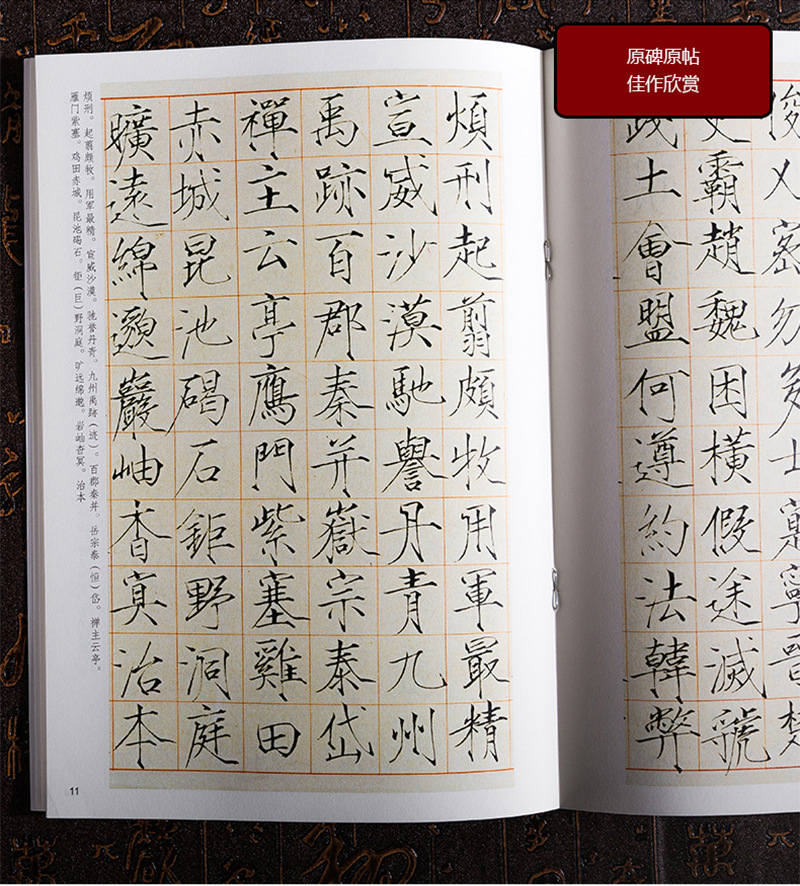 原碑原帖
佳作欣赏
俊乂密勿
霸趙魏困橫假途滅虢
踐土會盟何遵約法韓弊
煩刑起翦頗牧用軍最精
宣威沙漠馳譽丹青九州
禹跡百郡秦并嶽宗泰岱
禪主云亭鴈門紫塞雞田
赤城昆池碣石鉅野洞庭
曠遠綿邈巖岫杳冥治本
烦刑。起翦颇牧。用军最精。宣威沙漠。驰誉丹青。九州禹跡（迹）。百郡秦并。岳宗泰（恒）岱。禅主云亭。
雁门紫塞。鸡田赤城。昆池碣石。钜（巨）野洞庭。旷远绵邈。岩岫杳冥。治本
11